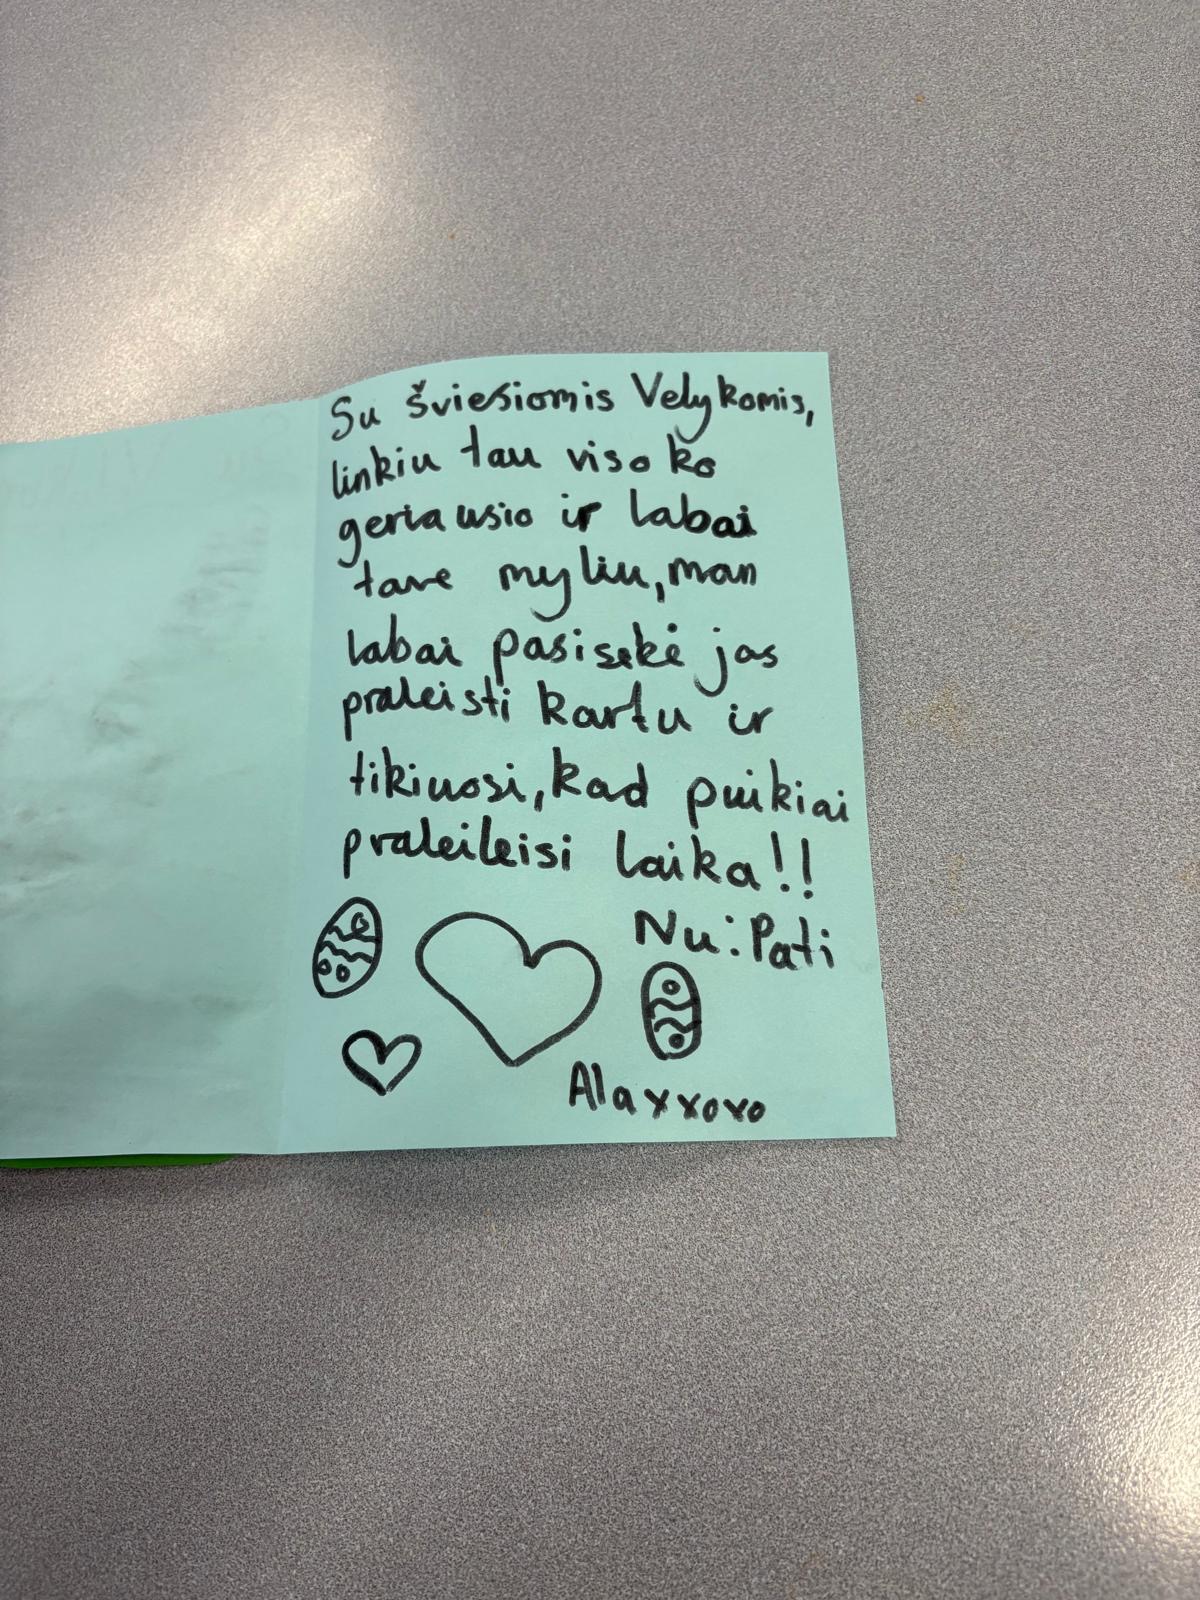 Su šviesiomis Velykomis,
linkiu tau viso ko
geriausio ir labai
tave myliu, man
labai pasisekė jas
praleisti kartu ir
tikiuosi, kad puikiai
praleileisi laika!!
Nu: Pati
Alaxxoxo